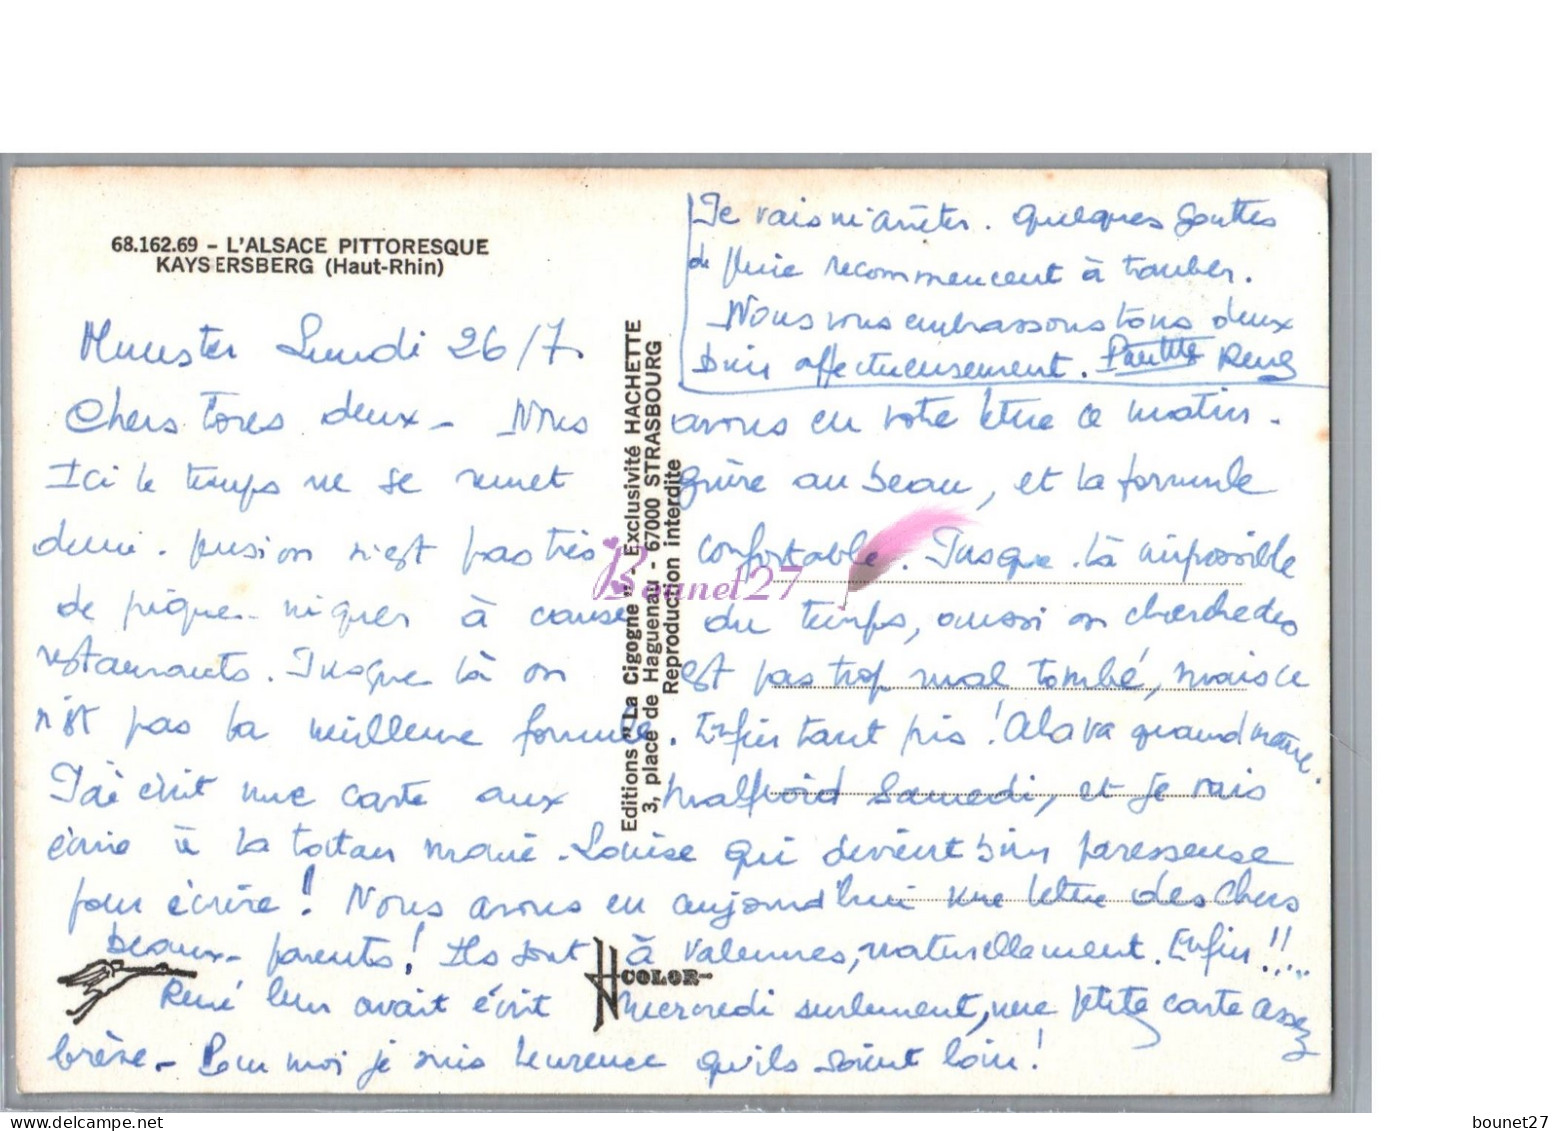 68.162.69 – L'ALSACE PITTORESQUE
KAYSERSBERG (Haut-Rhin)
Munster Lundi 26/7.
Chers tous deux - Nous avons eu votre lettre ce matin.
Ici le temps ne se remet guère au beau, et la formule
demi-pension n'est pas très confortable. Jusque-là impossible
de pique-niquer à cause du temps, aussi on cherche des
restaurants. Jusque là on est pas trop mal tombé, mais ce
n'est pas la meilleure formule. Enfin tant pis ! Cela va quand même.
J'ai écrit une carte aux Samedi, et je vais
écrire à la Marie-Louise qui devient bien paresseuse
pour écrire ! Nous avons eu aujourd'hui une lettre des chers
beaux-parents ! Ils sont à Valennes, naturellement. Enfin !!...
René leur avait écrit Mercredi seulement, une petite carte assez
brève - Pour moi je suis heureuse qu'ils soient loin !
Je vais m'arrêter. Quelques gouttes
de pluie recommencent à tomber.
Nous vous embrassons tous deux
bien affectueusement. Paulette René
Editions "La Cigogne" - Exclusivité HACHETTE
3, place de Haguenau - 67000 STRASBOURG
Reproduction interdite
COLOR
Bounet27
bounet27